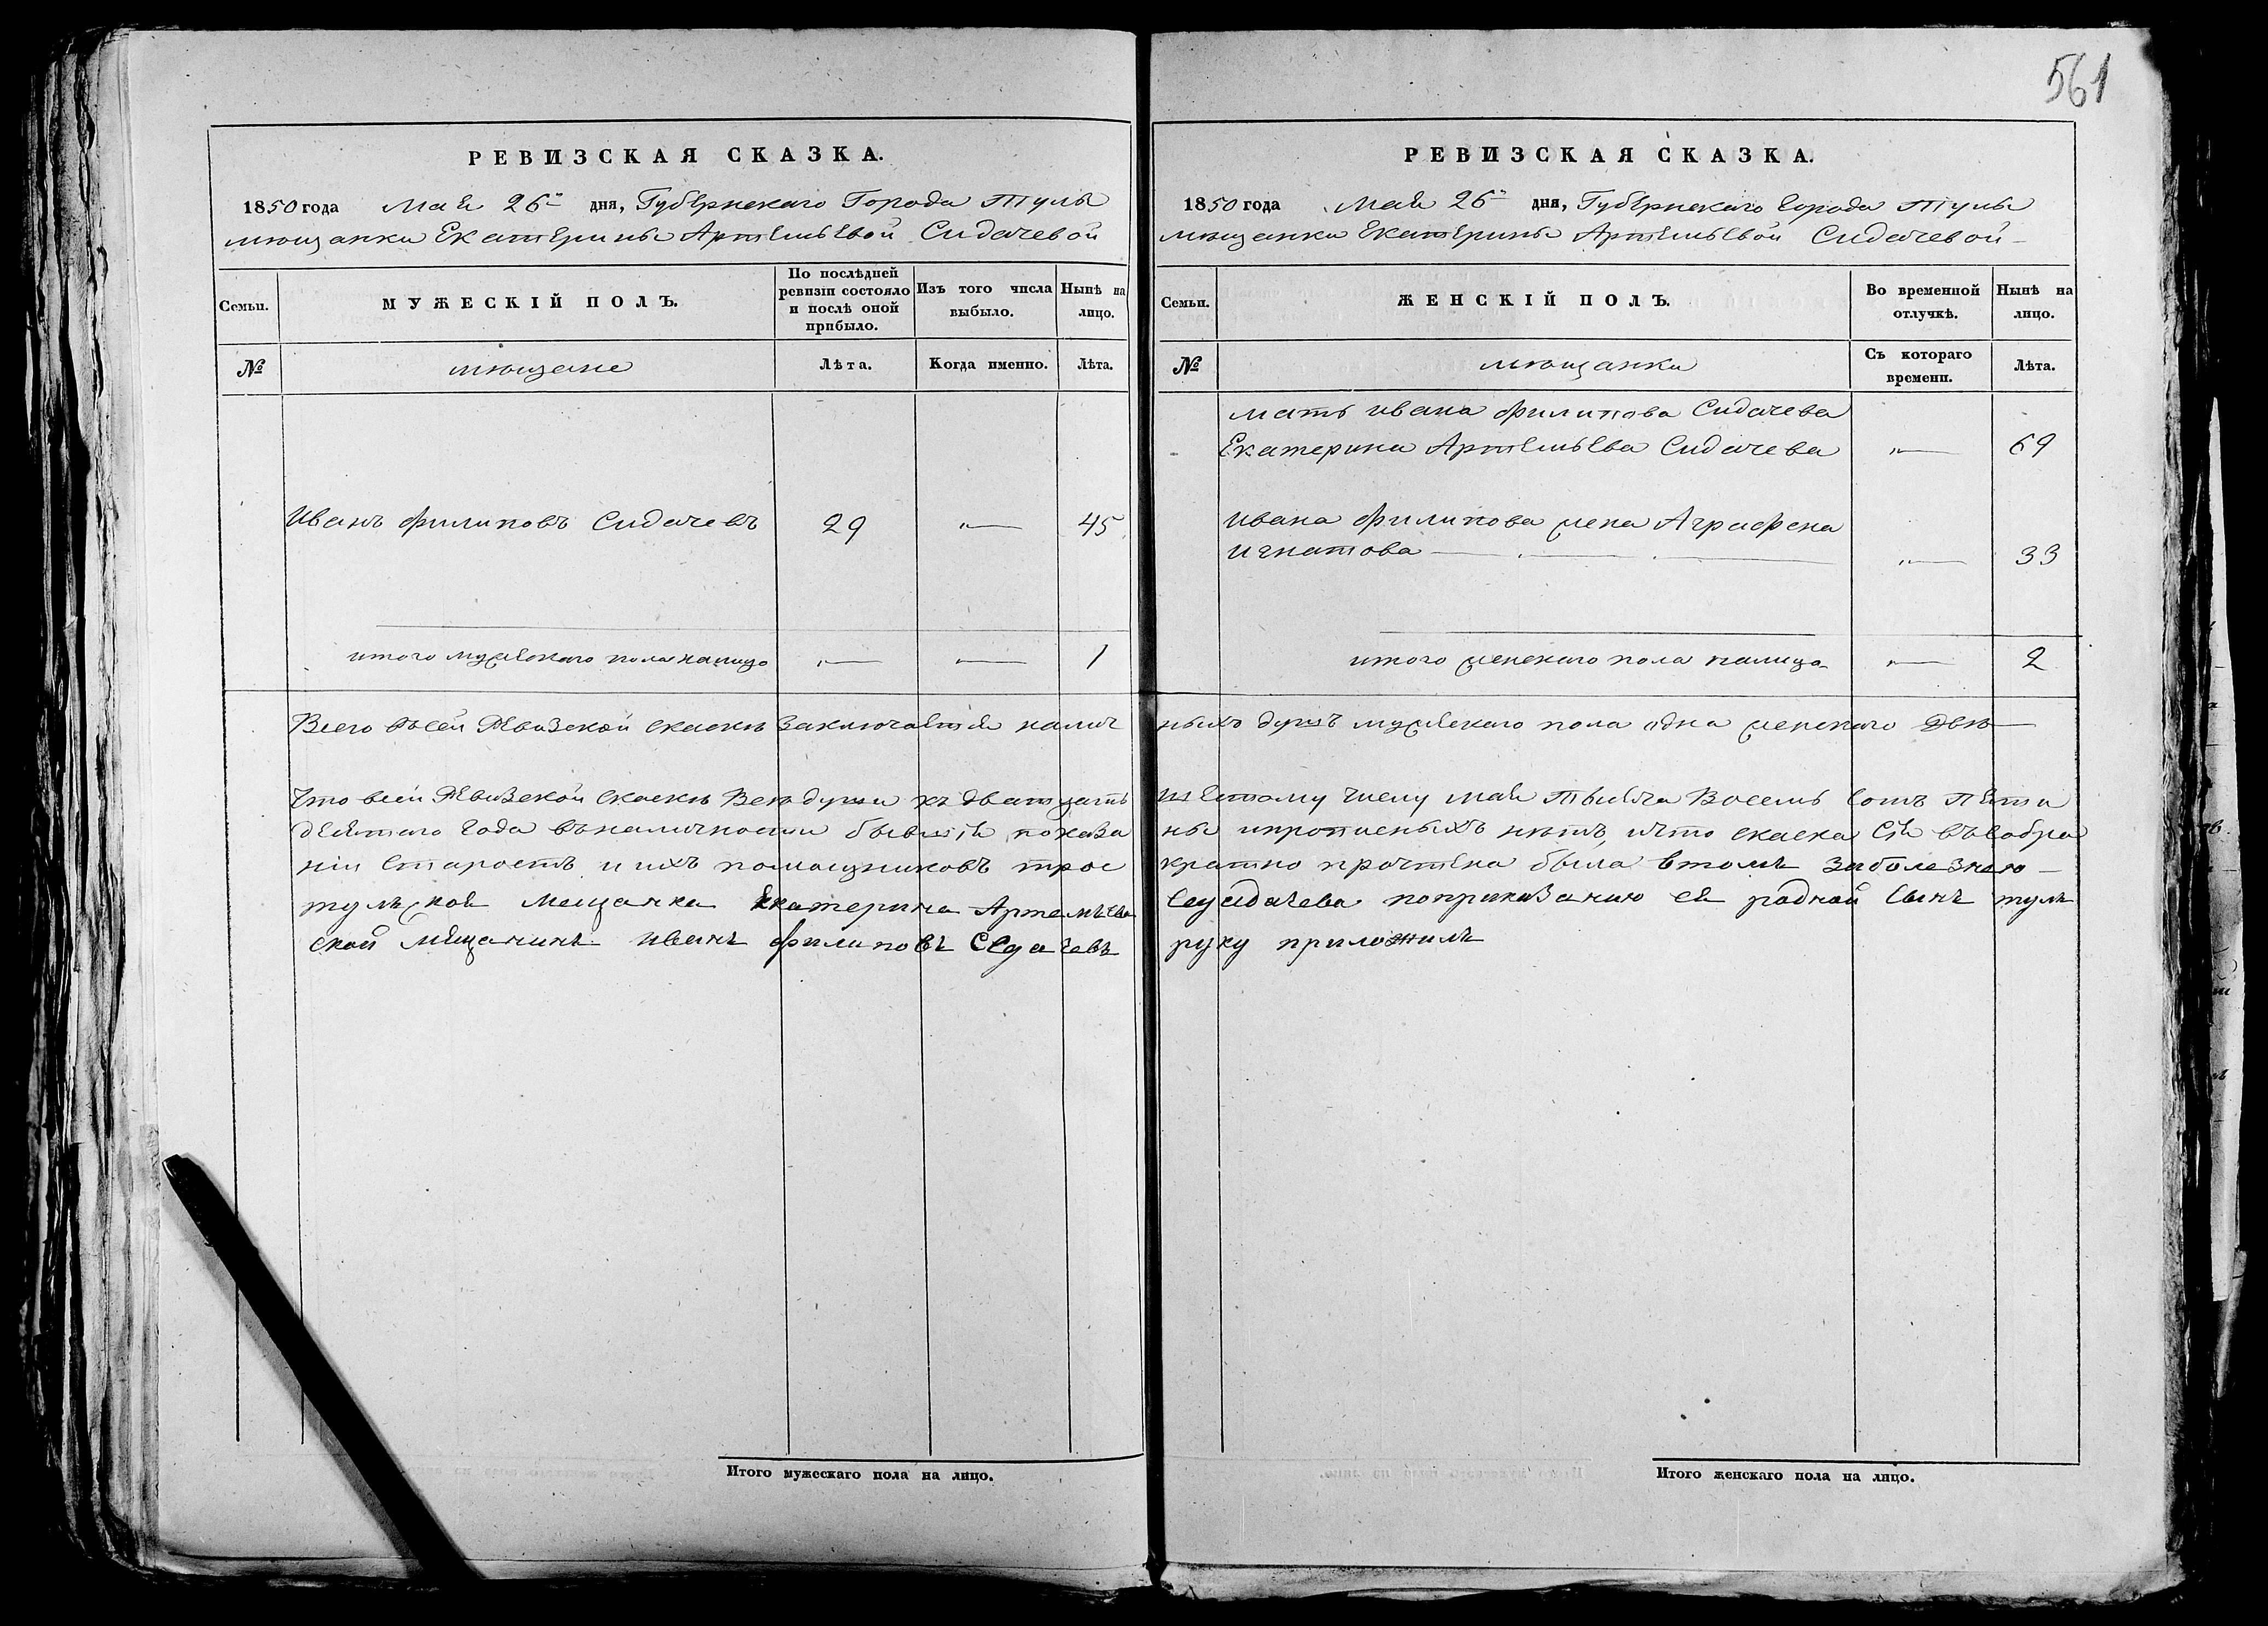 561
РЕВИЗСКАЯ СКАЗКА.
1850 года Мая 26го дня, Губернскаго Города Тулы
мѣщанки Екатерины Артемьевой Сидачевой
Семьи.
МУЖЕСКІЙ ПОЛЪ.
По послѣдней
ревизіи состояло
и послѣ оной
прибыло.
Изъ того числа
выбыло.
Нынѣ на
лицо.
№
мѣщане
Лѣта.
Когда именно.
Лѣта.
Иванъ Филиповъ Сидачевъ 29 „— 45
итого мужескаго пола налицо „— „— 1
Всего въсей Ревизской скаскѣ заключается налич
Что всей Ревизской скаскѣ Всѣ души къ дватцать
десятаго года въналичности бывшія показа
ніи Старостъ и ихъ помощниковъ трое
тульской мещанка Екатерина Артемьева
ской мещанинъ иванъ филиповъ Седачевъ
Итого мужескаго пола на лицо.
РЕВИЗСКАЯ СКАЗКА.
1850 года Мая 26го дня, Губернскаго города Тулы
мѣщанки Екатерины Артемьевой Сидачевой
Семьи.
ЖЕНСКІЙ ПОЛЪ.
Во временной
отлучкѣ.
Нынѣ на
лицо.
№
мѣщанки
Съ котораго
времени.
Лѣта.
мать ивана филипова Сидачева
Екатерина Артемьева Сидачева „— 69
ивана филипова жена Аграфена
игнатова „— 33
итого женскаго пола налицо „— 2
ныхъ душъ мужескаго пола одна женскаго двѣ
шестому числу мая тысяча Восемь сотъ пяти
ны ипрописныхъ нѣтъ, ичто скаска сія въ собра
кратно прочтена была втомъ заболезнею
Сеуидачева поприказанию ея родной Сынъ туль
руку приложилъ
Итого женскаго пола на лицо.